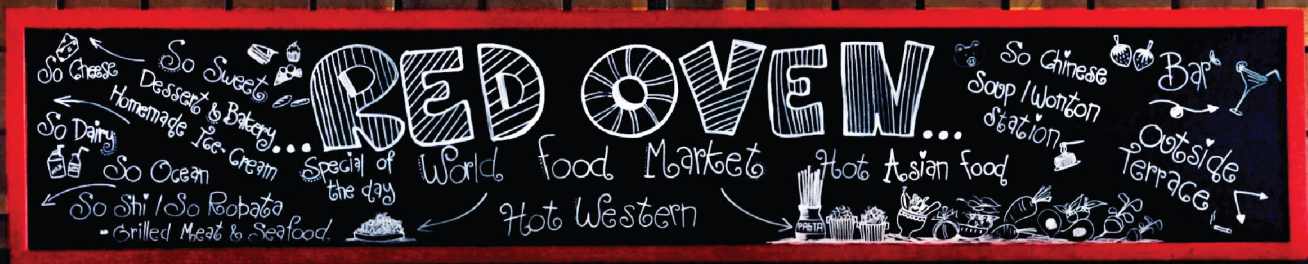 So Cheese
So Sweet
Dessert & Bakery
Homemade Ice-Cream
So Dairy
So Ocean
So Shi / So Robata
- Grilled Meat & Seafood
RED OVEN...
...Special of
the day
World Food Market
Hot Western
Hot Asian food
PASTA
So Chinese
Soup / Wonton
Station
Bar
Outside
Terrace